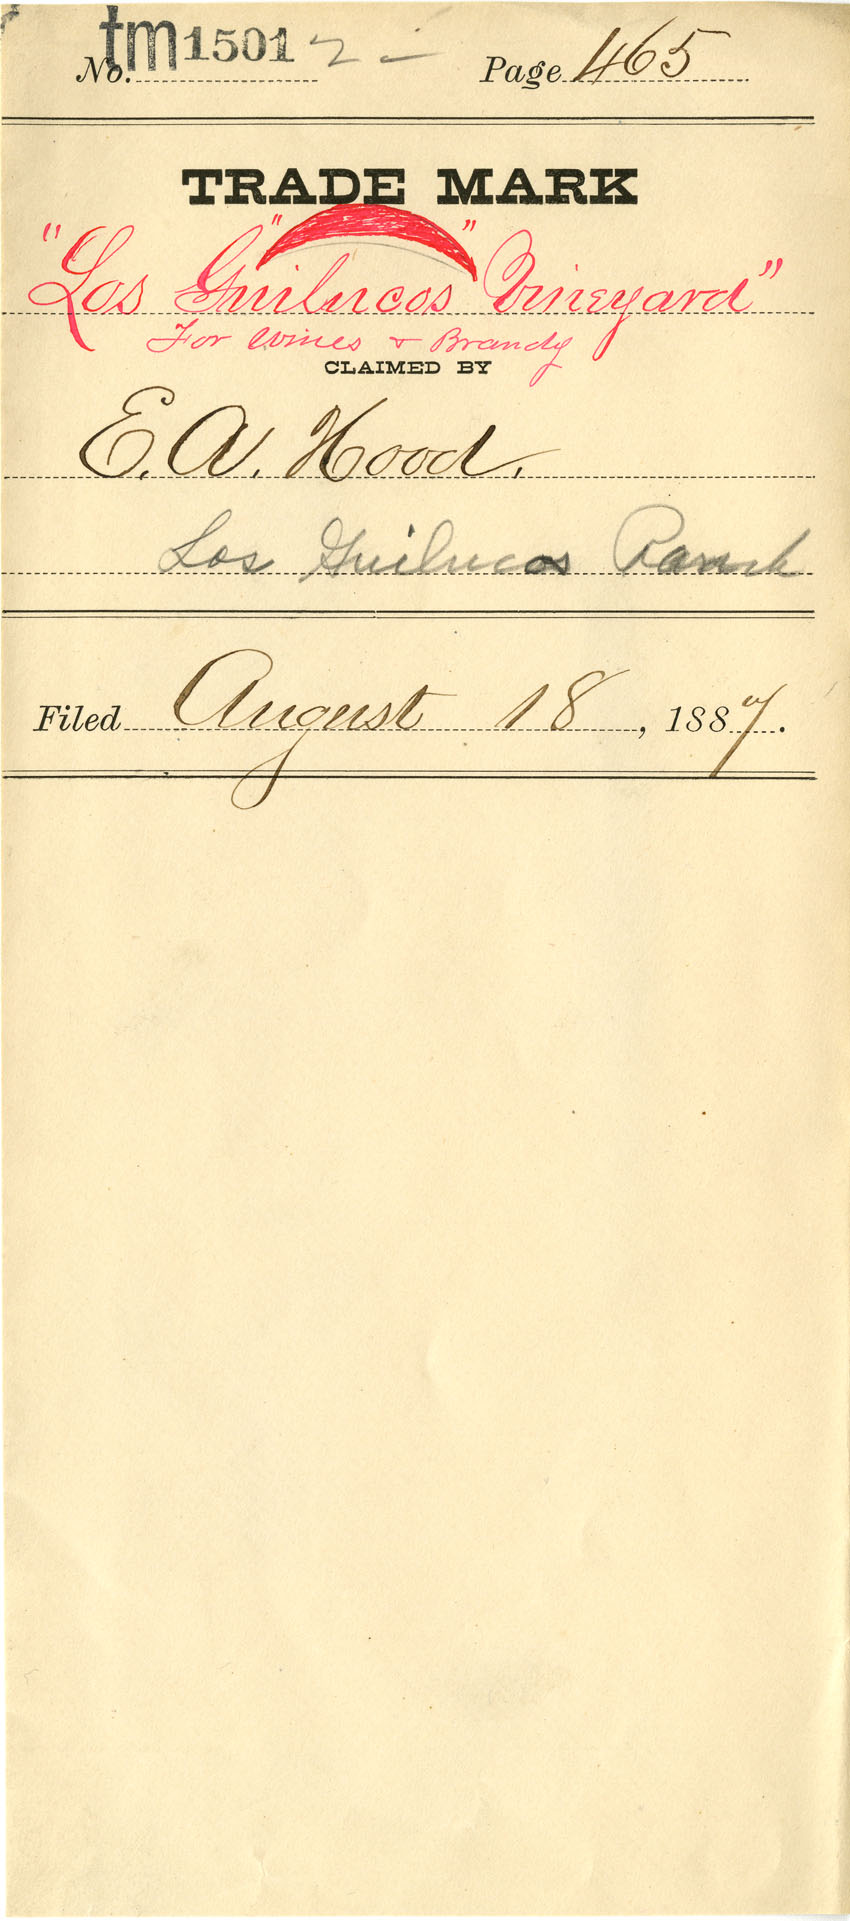 tm 1501
No. Page 465
TRADE MARK
" "
"Los Guilucos Vineyard"
For Wines & Brandy
CLAIMED BY
E. A. Hood.
Los Guilucos Ranch
Filed August 18, 1887.